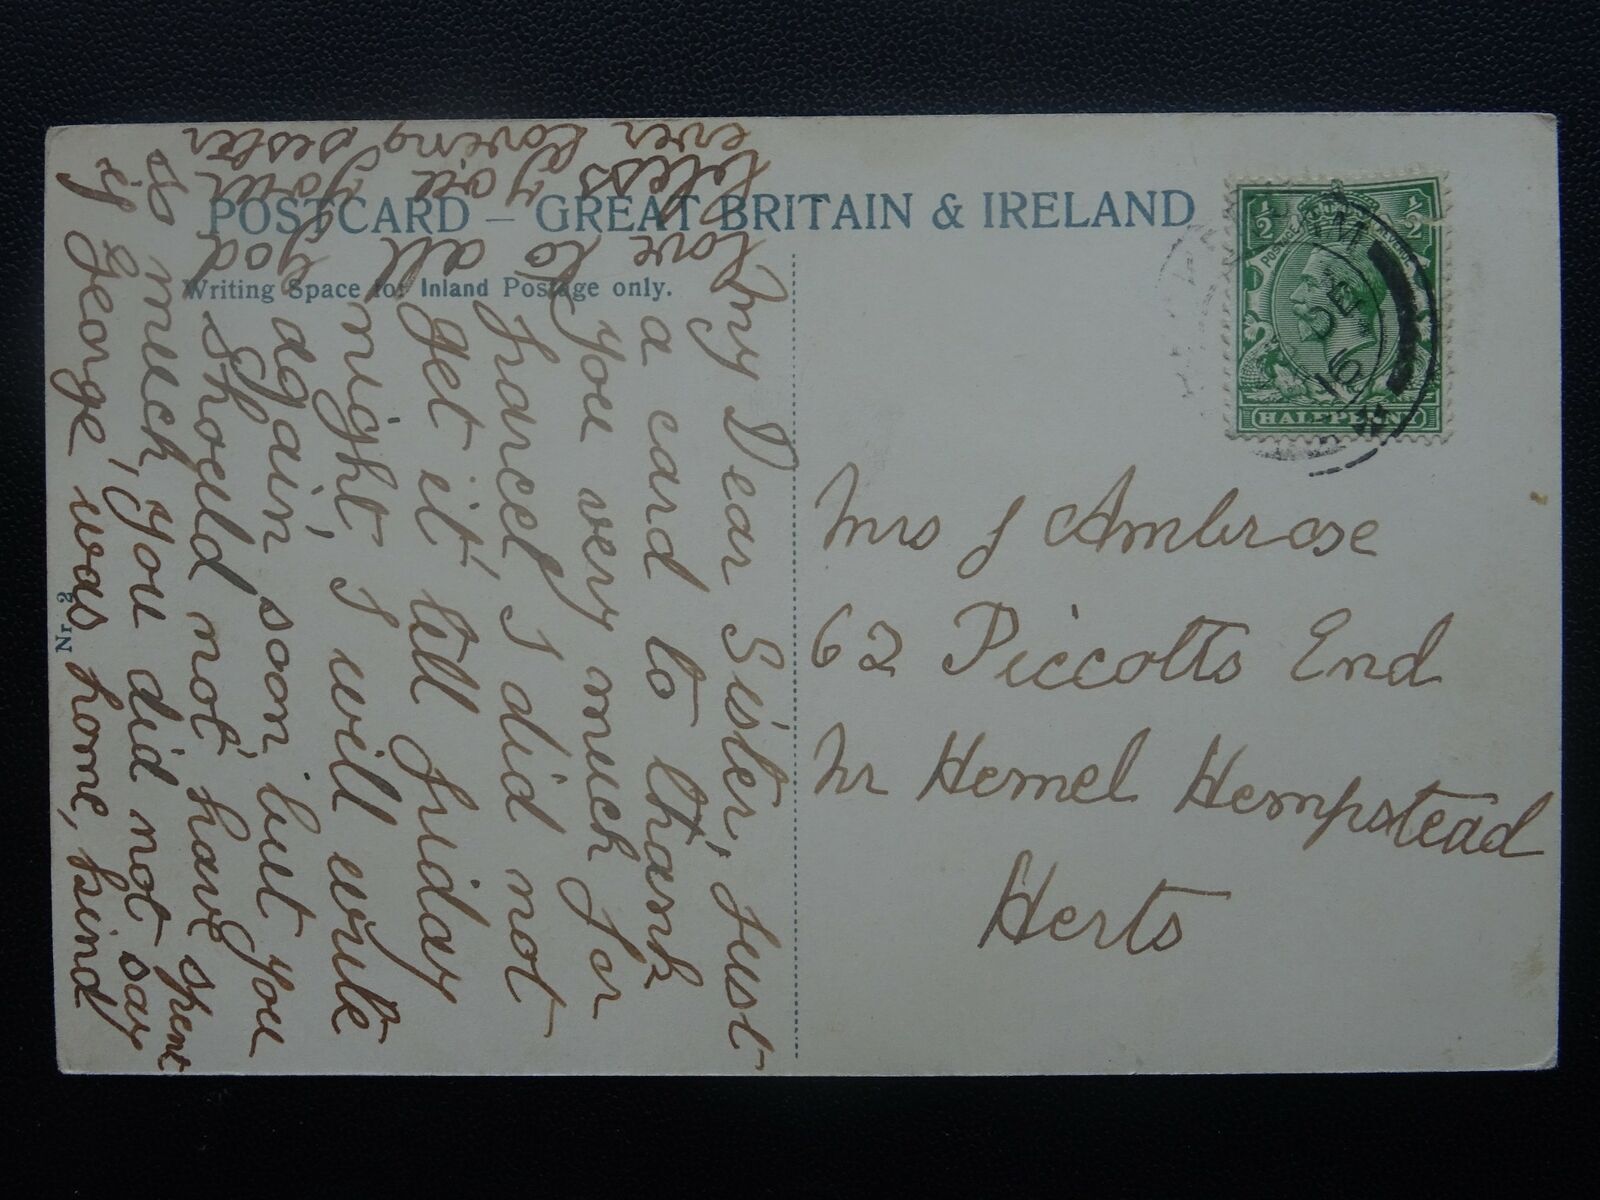 POSTCARD – GREAT BRITAIN & IRELAND
Writing Space for Inland Postage only.
My Dear Sister, Just
a card to thank
you very much for
parcel, I did not
get it, till friday
night, I will write
again, soon, but you
should not, have spent
so much, you did not say
if George, was home, kind
love to all God
bless you your
ever loving sister
Nr. 2
½ ½
POSTAGE REVENUE
HALFPENNY
DE
16
Mrs J Ambrose
62 Piccotts End
Nr Hemel Hempstead
Herts